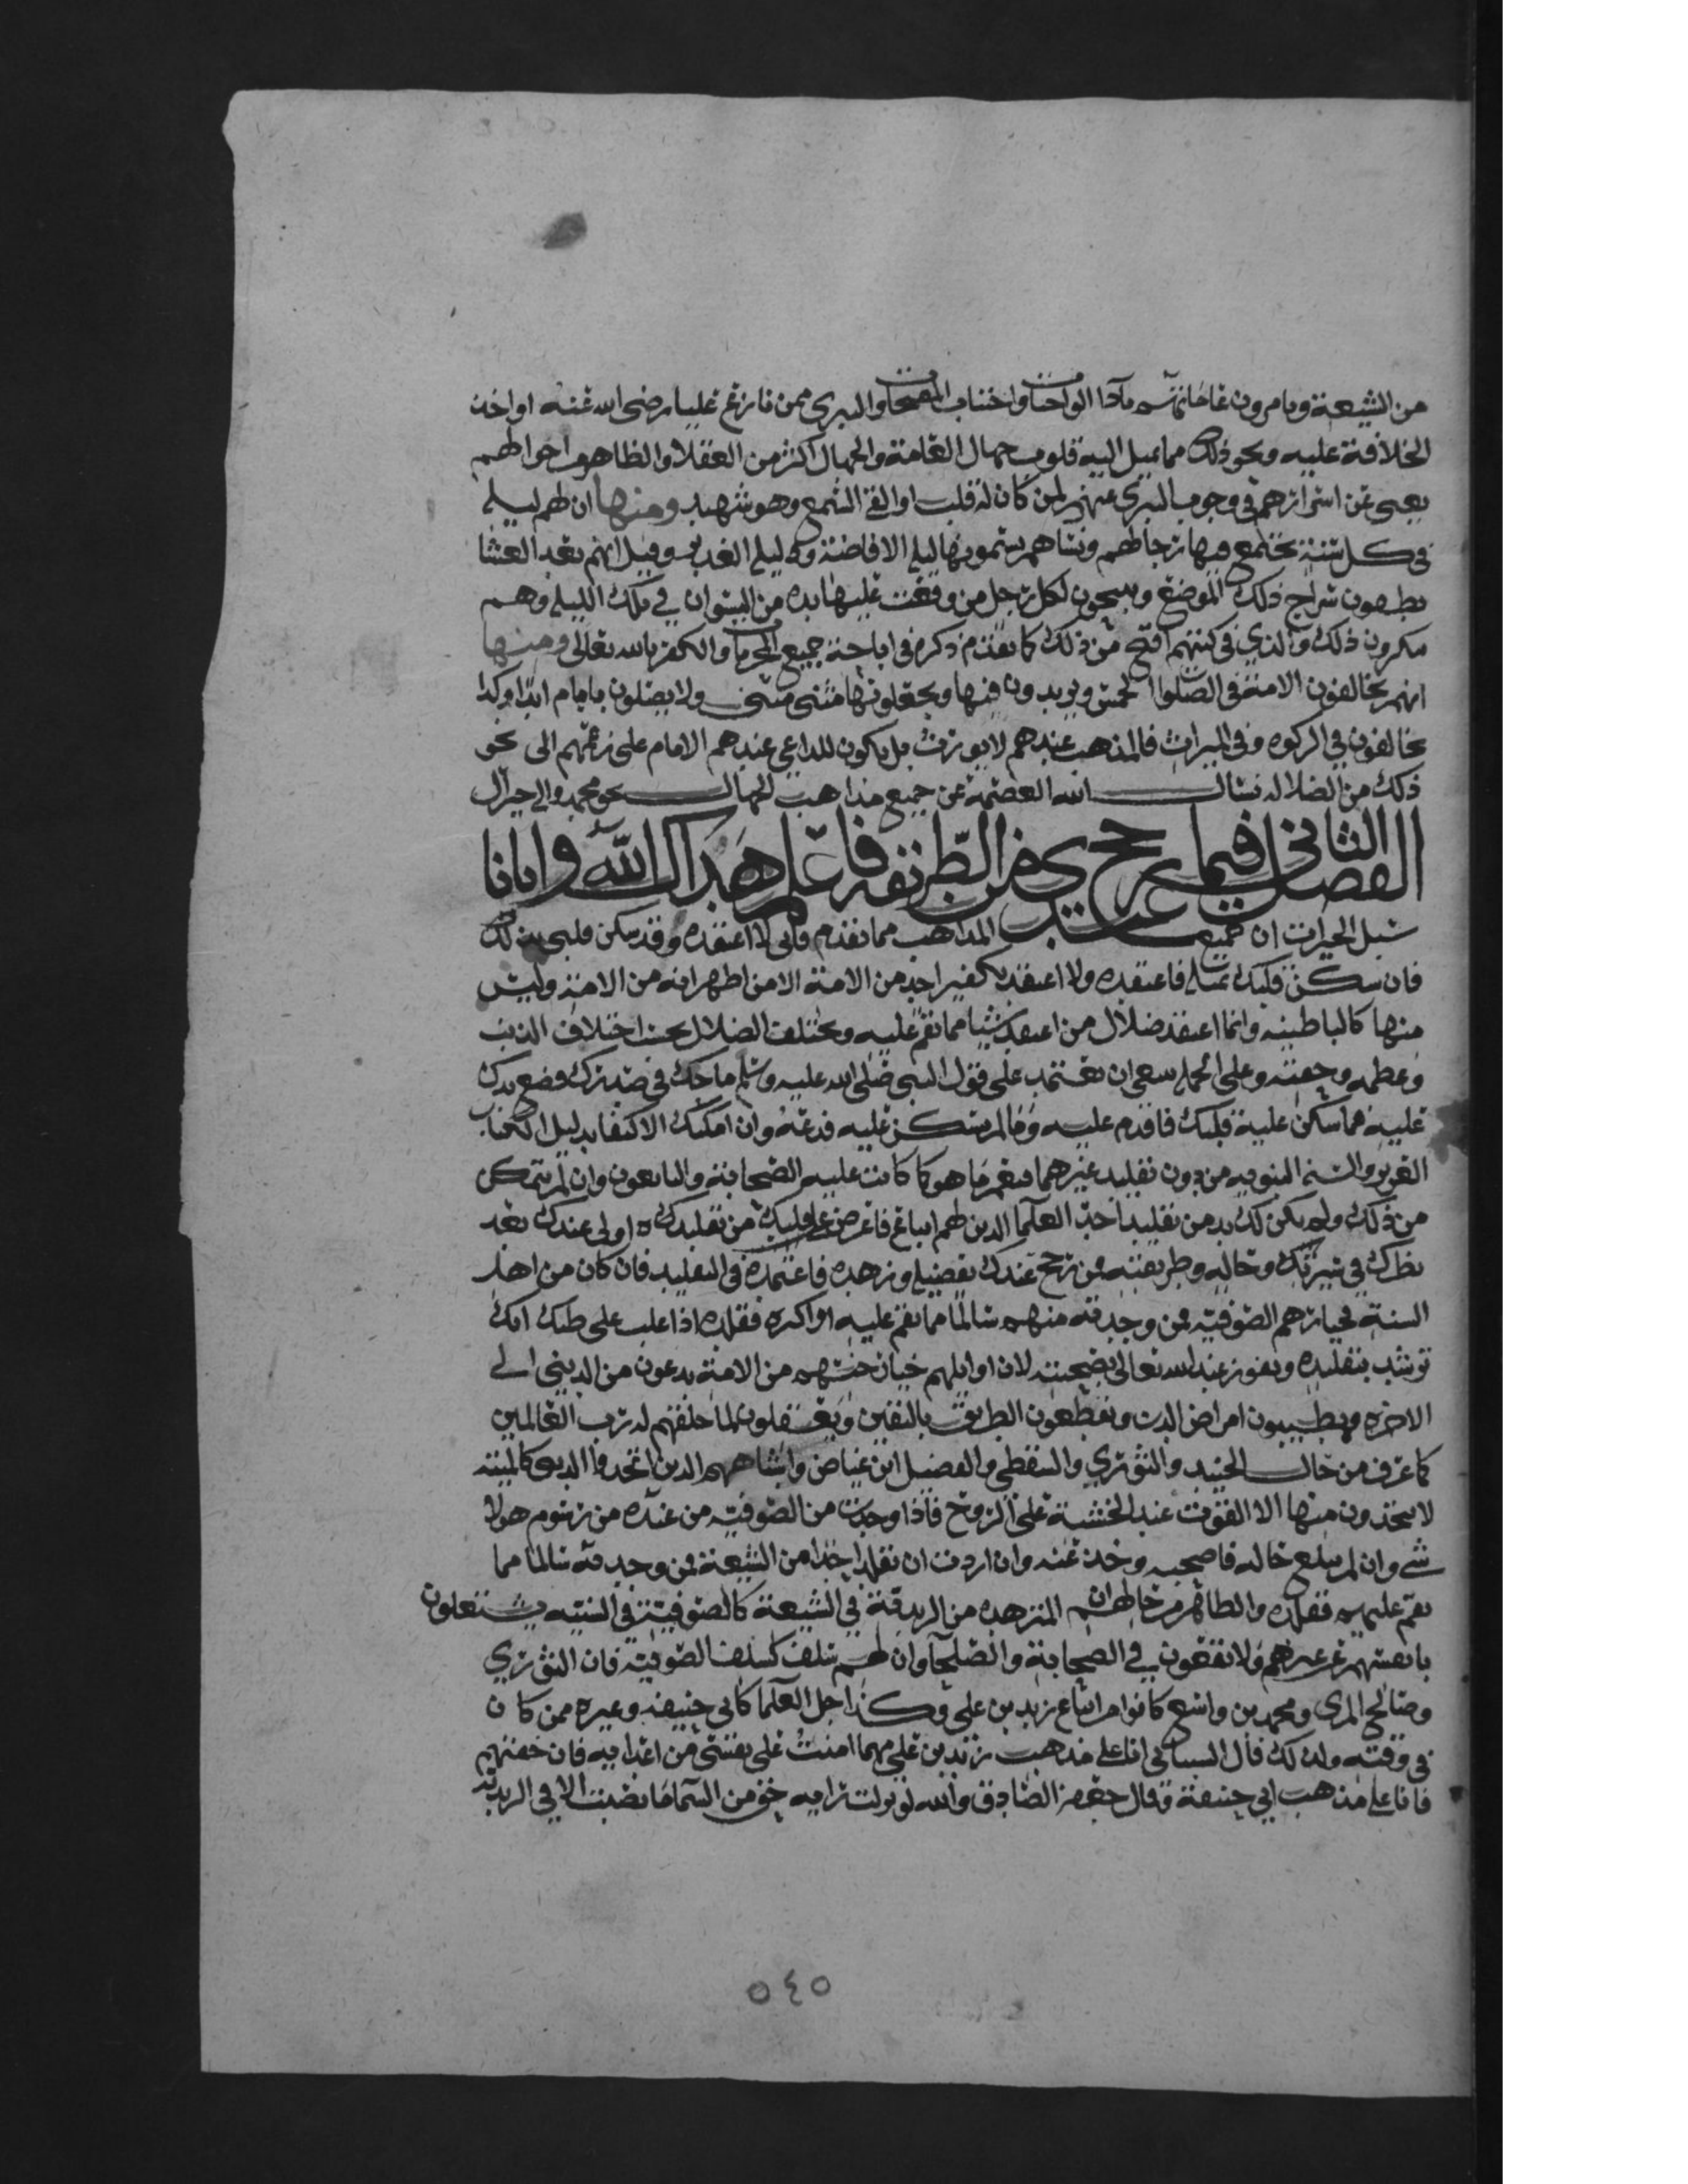 من الشيعة ويامرون عامتهم بآدا الواجبات واجتناب المقبحات والتبري ممن نازع عليا رضي الله عنه او اخذ
الخلافة عليه ونحو ذلك مما تميل اليه قلوب جهال العامة والجهال اكثر من العقلا والظاهر من احوالهم
يعمى عن اسرارهم في وجوب التبري عنهم لمن كان له قلب او القى السمع وهو شهيد ومنها ان لهم ليله
في كل سنة يجتمع فيها رجالهم ونساهم يسمونها ليله الافاضة وقيل انهم بعد العشا
يطفون سراج ذلك الموضع ويبيحون لكل رجل من وقعت عليها يده من النسوان في تلك الليله وهم
ينكرون ذلك والذي في كتبهم اقبح من ذلك كما تقدم ذكره في اباحة جميع المحرمات والكفر بالله تعالى ومنها
انهم يخالفون الامة في الصلوات الخمس ويزيدون فيها ويجعلونها مثنى مثنى ولا يصلون بامام ابدا وكذا
يخالفون في الزكوه وفي الميراث فالمذهب عندهم لا يورث بل يكون للداعي عندهم الامام على زعمهم الى نحو
ذلك من الضلاله نسال الله العصمة عن جميع مذاهب الجهال بحق محمد واله خير ال
الفصل الثاني فيما يرجح عندي من الطريقه فاعلم هداك الله وايانا
سبل الخيرات ان جميع المذاهب مما تقدم فاني لا اعتقده وقد سكن قلبي بذلك
فان سكن قلبك بمثله فاعتقده ولا اعتقد تكفير احد من الامة الا من اظهر انه من الامة وليس
منها كالباطنيه وانما اعتقد ضلال من اعتقد شيا مما نقم عليه ويختلف الضلال بحسب اختلاف الذنب
وعظمه وخفته وعلى الجمله ينبغي ان تعتمد على قول النبي صلى الله عليه وسلم ما حك في صدرك فضع يدك
عليه فما سكن عليه قلبك فاقدم عليه وما لم يسكن عليه فدعه وان امكنك الاكتفا بدليل الكتاب
العزيز والسنه النبويه من دون تقليد غيرهما فنعم ما هو كما كانت عليه الصحابة والتابعون وان لم تتمكن
من ذلك ولم يكن لك بد من تقليد احد العلما الذين لهم اتباع فاعرض على قلبك من تقليدك اولى عندك بعد
نظرك في سيرته وحاله وطريقته فمن رجح عندك بفضله وزهده فاعتمده في التقليد فان كان من اهل
السنة فخيارهم الصوفيه فمن وجدته منهم سالما مما نقم عليه او اكثره فقلده اذا غلب على ظنك انك
ترشد بتقليده وتفوز عند الله تعالى بصحبته لان اوايلهم خيار جنسهم من الامة يدعون من الدنيا الى
الاخره ويطببون امراض الدين ويقطعون الطريق باليقين ويتغفلون لما خلقهم له رب العالمين
كما عرف من حال الجنيد والثوري والسقطي والفضيل ابن عياض واشباههم الذين اتخذوا الدنيا كالميته
لا يتخذون منها الا القوت عند الخشية على الروح فاذا وجدت من الصوفيه من عنده من رسوم هولا
شي وان لم يبلغ حاله فاصحبه وخذ عنه وان اردت ان تقلد احدا من الشيعة فمن وجدته سالما مما
نقم عليهم فقلده والظاهر من حالهم ان المتزهده من الزيدية في الشيعة كالصوفية في السنيه يشتغلون
بانفسهم عن غيرهم ولا يقعون في الصحابة والصلحا وان لهم سلف كسلف الصوفيه فان الثوري
وصالح المري ومحمد بن واسع كانوا من اتباع زيد بن علي وكذا جل العلما كابي حنيفه وغيره ممن كان
في وقته ولذلك قال السيباني انا على مذهب زيد بن علي مهما امنت على نفسي من اعدايه فان خفتهم
فانا على مذهب ابي حنيفة وقال جعفر الصادق والله لو نزلت رايه حق من السما ما نصبت الا في الزيديه
٥٤٥